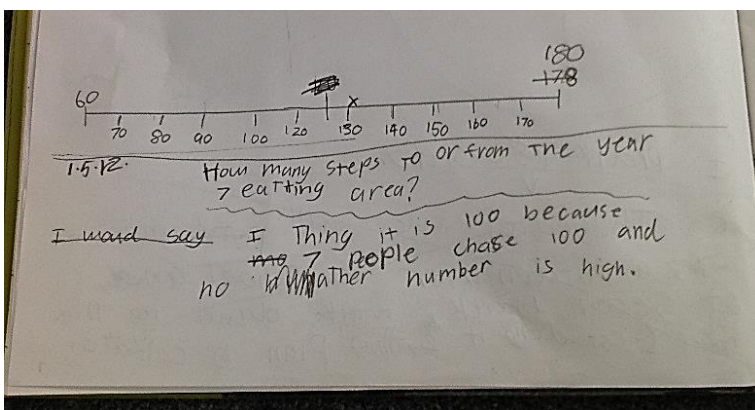 180
178
60
70 80 90 100 120 130 140 150 160 170
1.5.12. How many steps to or from the year
7 eatting area?
I woud say I Thing it is 100 because
7 people chose 100 and
no ather number is high.